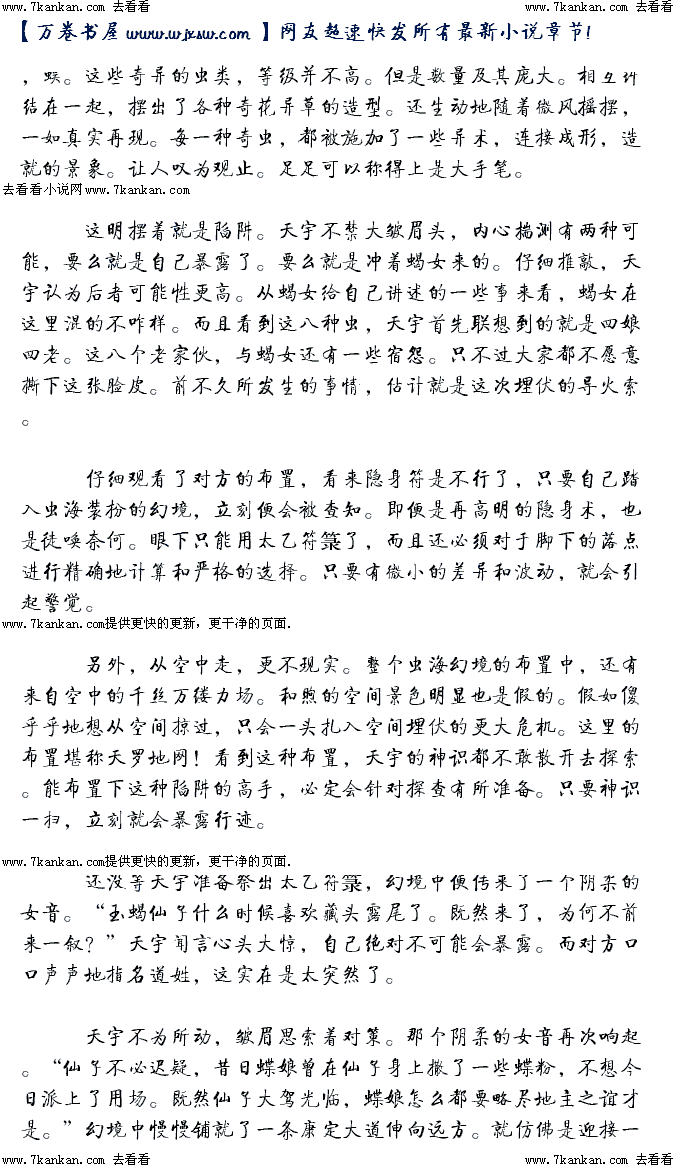 www.7kankan.com 去看看 www.7kankan.com 去看看
【万卷书屋 www.wjxsw.com 】网友超速快发所有最新小说章节!
。这些奇异的虫类，等级并不高。但是数量及其庞大。相互纠
结在一起，摆出了各种奇花异草的造型。还生动地随着微风摇摆，
一如真实再现。每一种奇虫，都被施加了一些异术，连接成形，造
就的景象。让人叹为观止。足足可以称得上是大手笔。
去看看小说网www.7kankan.com
这明摆着就是陷阱。天宇不禁大皱眉头，内心揣测有两种可
能，要么就是自己暴露了。要么就是冲着蝎女来的。仔细推敲，天
宇认为后者可能性更高。从蝎女给自己讲述的一些事来看，蝎女在
这里混的不咋样。而且看到这八种虫，天宇首先联想到的就是四娘
四老。这八个老家伙，与蝎女还有一些宿怨。只不过大家都不愿意
撕下这张脸皮。前不久所发生的事情，估计就是这次埋伏的导火索
。
仔细观看了对方的布置，看来隐身符是不行了，只要自己踏
入虫海装扮的幻境，立刻便会被查知。即便是再高明的隐身术，也
是徒唤奈何。眼下只能用太乙符箓了，而且还必须对于脚下的落点
进行精确地计算和严格的选择。只要有微小的差异和波动，就会引
起警觉。
www.7kankan.com提供更快的更新，更干净的页面.
另外，从空中走，更不现实。整个虫海幻境的布置中，还有
来自空中的千丝万缕力场。和煦的空间景色明显也是假的。假如傻
乎乎地想从空间掠过，只会一头扎入空间埋伏的更大危机。这里的
布置堪称天罗地网！看到这种布置，天宇的神识都不敢散开去探索
。能布置下这种陷阱的高手，必定会针对探查有所准备。只要神识
一扫，立刻就会暴露行迹。
www.7kankan.com提供更快的更新，更干净的页面.
还没等天宇准备祭出太乙符箓，幻境中便传来了一个阴柔的
女音。“玉蝎仙子什么时候喜欢藏头露尾了。既然来了，为何不前
来一叙？”天宇闻言心头大惊，自己绝对不可能会暴露。而对方口
口声声地指名道姓，这实在是太突然了。
天宇不为所动，皱眉思索着对策。那个阴柔的女音再次响起
。“仙子不必迟疑，昔日蝶娘曾在仙子身上撒了一些蝶粉，不想今
日派上了用场。既然仙子大驾光临，蝶娘怎么都要略尽地主之谊才
是。”幻境中慢慢铺就了一条康定大道伸向远方。就仿佛是迎接一
www.7kankan.com 去看看 www.7kankan.com 去看看